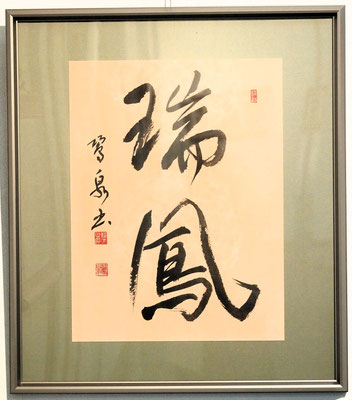 瑞鳳
鷲泉書